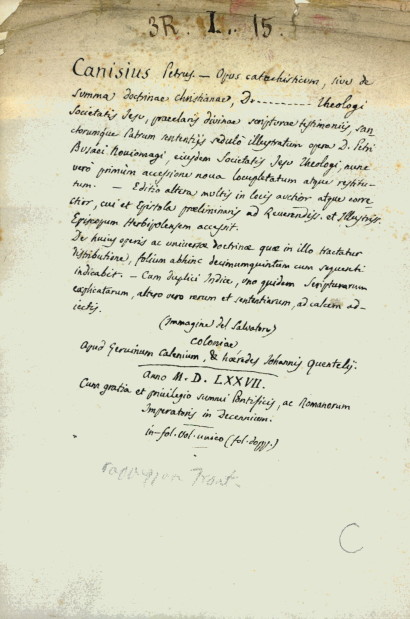 3R. I. 15.
Canisius Petrus. — Opus catechisticum, sive de
summa doctrinae christianae, D. --------- Theologi
Societatis Jesu, praeclaris divinae scripturae testimoniis, san-
ctorumque Patrum sententijs sedulo illustratum opera D. Petri
Busaei Noviomagi, eiusdem Societatis Jesu Theologi, nunc
verò primùm accessione nova locupletatum atque restitu-
tum. — Editio altera multis in locis auctior atque corre
ctior, cui et Epistola praeliminaris ad Reverendiss. et Illustriss.
Episcopum Herbipolensem accessit.
De huius operis ac universae doctrinae quae in illo tractatur
distributione, folium abhinc decimumquintum cum sequenti
indicabit. — Cum duplici Indice, uno quidem Scripturarum
explicatarum, altero vero rerum et sententiarum, ad calcem ad-
iectis.
(Immagine del Salvatore)
coloniae
Apud Gervinum Calenium, & haeredes Johannis Quentelij.
Anno M. D. LXXVII.
Cum gratia et privilegio summi Pontificis, ac Romanorum
Imperatoris in Decennium.
in-fol. Vol. unico (fol. dopp.)
Front.
C